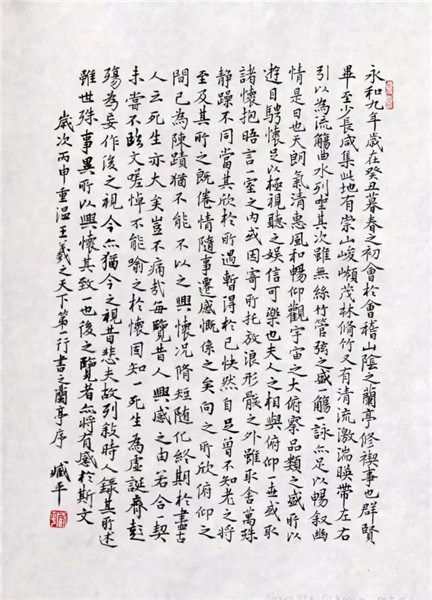 永和九年歲在癸丑暮春之初會於會稽山陰之蘭亭修禊事也群賢
畢至少長咸集此地有崇山峻嶺茂林脩竹又有清流激湍暎帶左右
引以為流觴曲水列坐其次雖無絲竹管弦之盛觴一詠亦足以暢叙幽
情是日也天朗氣清惠風和暢仰觀宇宙之大俯察品類之盛所以
遊目騁懷足以極視聽之娛信可樂也夫人之相與俯仰一世或取
諸懷抱晤言一室之內或因寄所托放浪形骸之外雖取舍萬殊
静躁不同當其欣於所遇暫得於己快然自足曾不知老之將
至及其所之既倦情隨事遷感慨係之矣向之所欣俯仰之
間已為陳蹟猶不能不以之興懷況脩短隨化終期於盡古
人云死生亦大矣豈不痛哉每覽昔人興感之由若合一契
未嘗不臨文嗟悼不能喻之於懷固知一死生為虛誕齊彭
殤為妄作後之視今亦猶今之視昔悲夫故列敘時人錄其所述
雖世殊事異所以興懷其致一也後之覽者亦將有感於斯文
歲次丙申重溫王羲之天下第一行書之蘭亭序 臧平